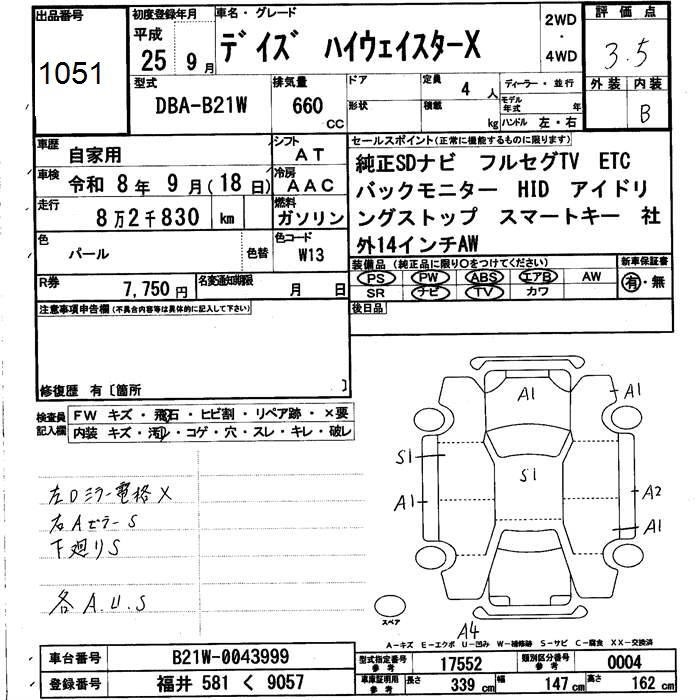 出品番号
1051
初度登録年月
平成
25 9月
車名・グレード
デイズ ハイウェイスターX
2WD
・
4WD
評価点
3.5
外装 内装
B
型式
DBA-B21W
排気量
660
cc
ドア
形状
定員 4 人
積載 kg
ディーラー・並行
モデル年式 年
ハンドル 左・右
車歴 自家用
シフト AT
車検 令和 8年 9月(18日)
冷房 AAC
走行 8万2千830 km
燃料 ガソリン
色 パール 色替
色コード W13
R券 7,750円
名変通知期限 月 日
セールスポイント(正常に機能するものに限ります)
純正SDナビ フルセグTV ETC
バックモニター HID アイドリ
ングストップ スマートキー 社
外14インチAW
装備品(純正品に限り○をつけてください)
新車保証書
PS PW ABS エアB AW
SR ナビ TV カワ
有・無
後日品
注意事項申告欄(不具合内容等は具体的に記入して下さい)
修復歴 有〔箇所 〕
検査員
記入欄
FW キズ・飛石・ヒビ割・リペア跡・×要
内装 キズ・汚れ・コゲ・穴・スレ・キレ・破レ
左Dミラー電格X
右AピラーS
下廻りS
各A.U.S
A1
A1
S1
S1
A1
A2
A1
A4
スペア
A-キズ E-エクボ U-凹み W-補修跡 S-サビ C-腐食 XX-交換済
車台番号 B21W-0043999
登録番号 福井 581 く 9057
型式指定番号 参考 17552
類別区分番号 参考 0004
車庫証明用 参考 長さ 339 cm 幅 147 cm 高さ 162 cm